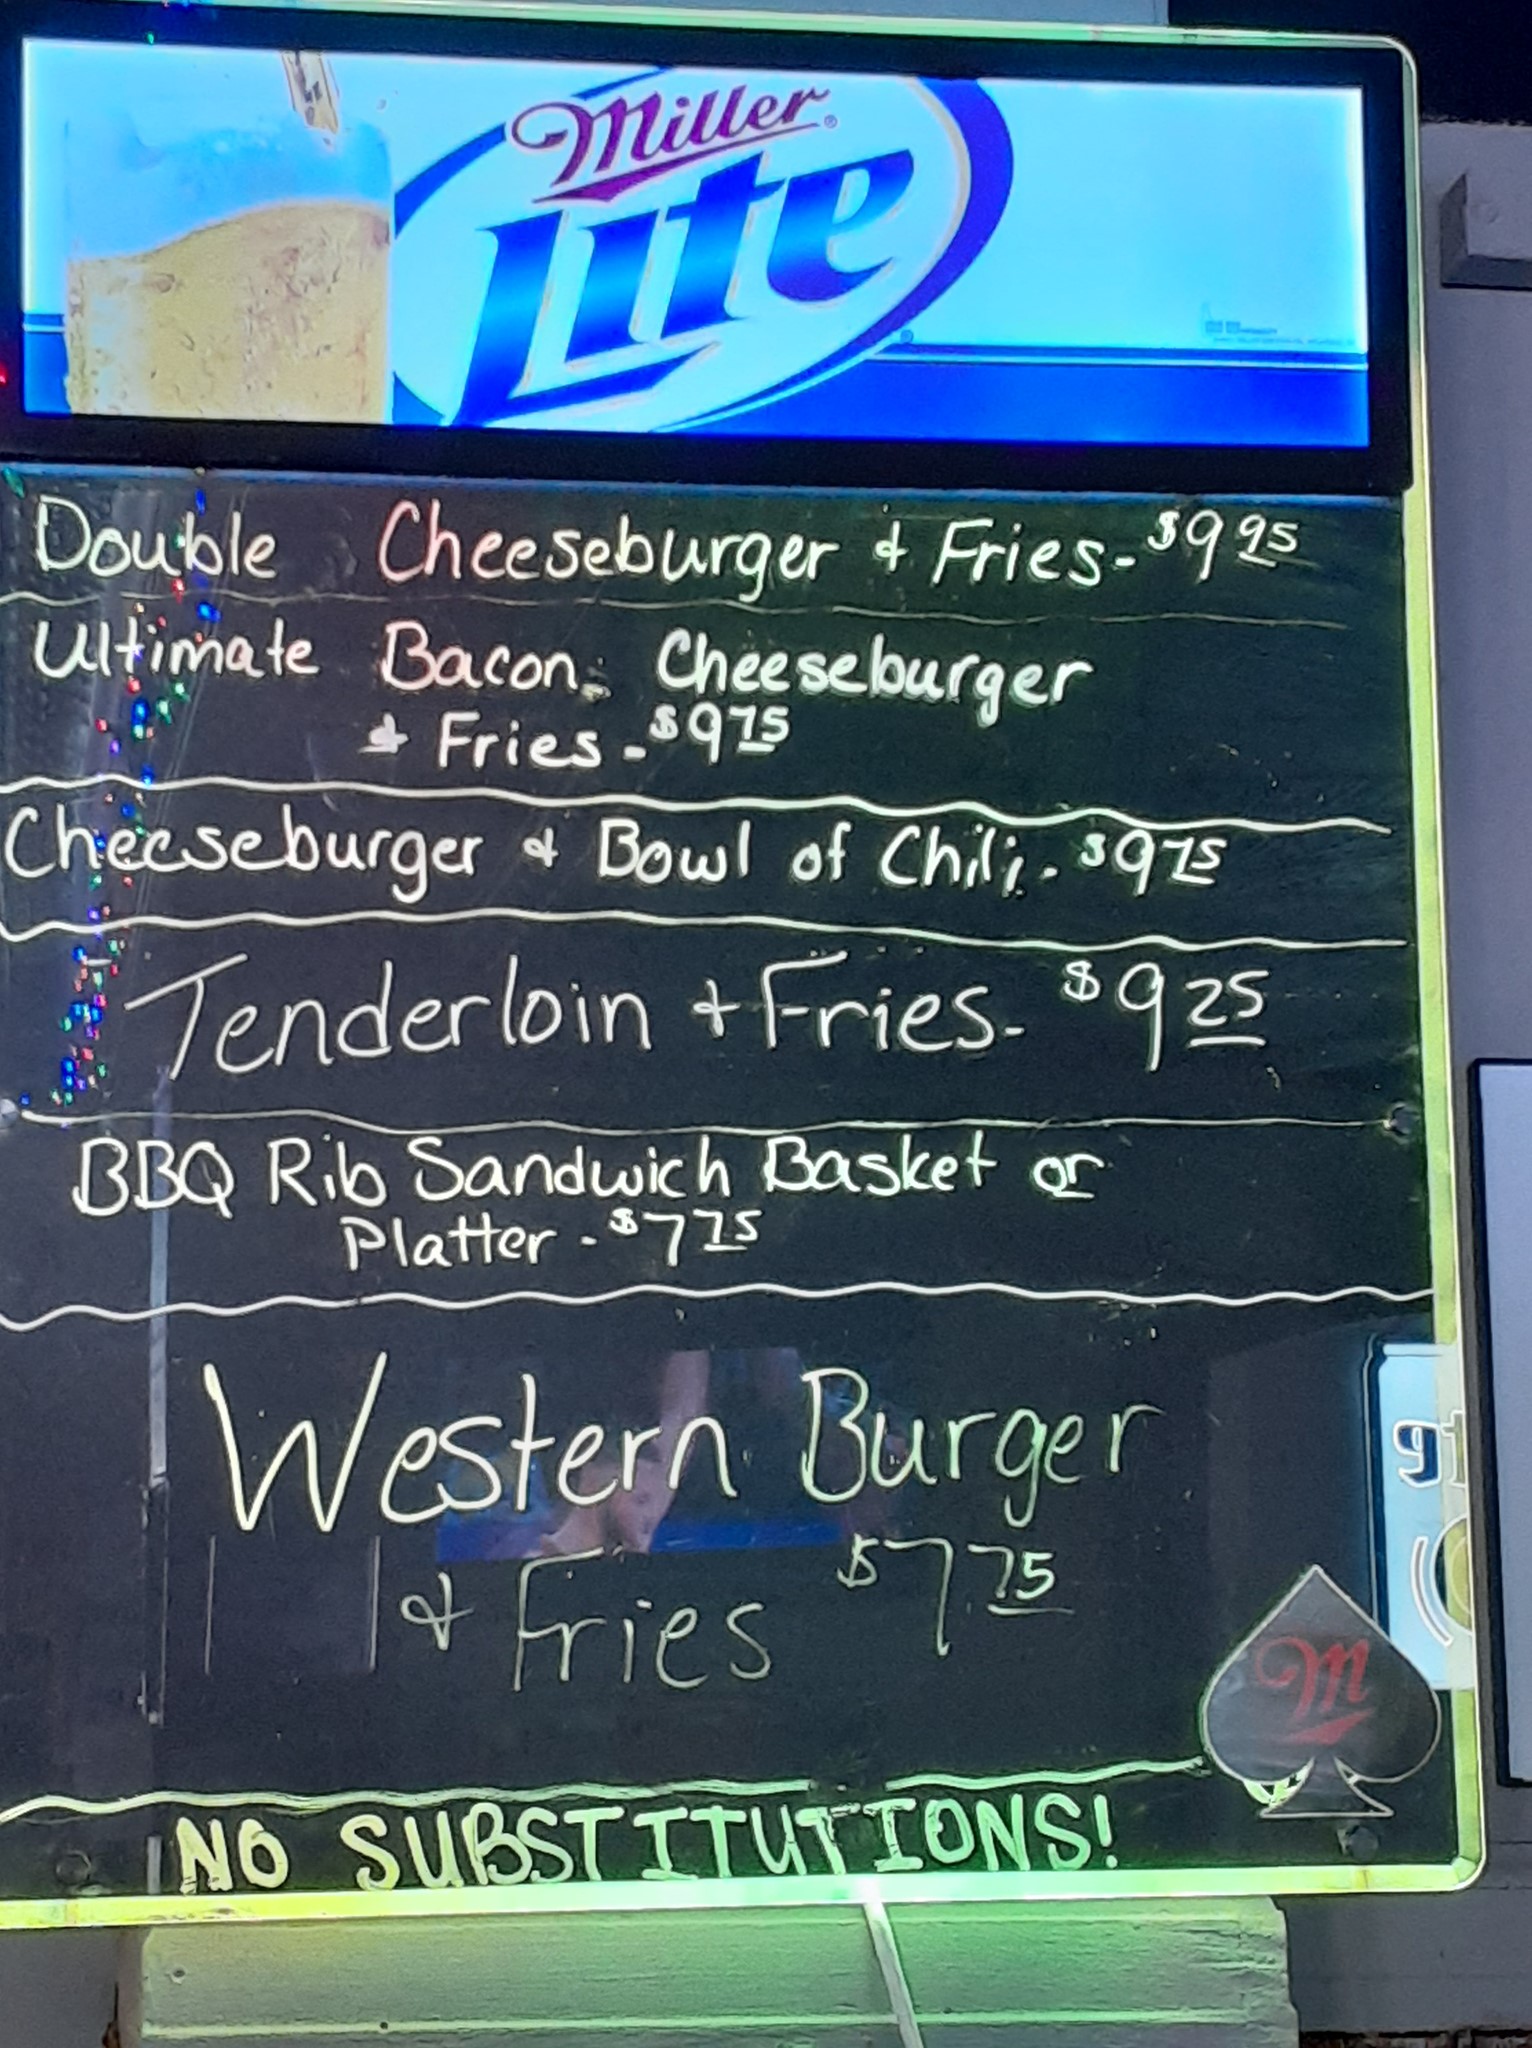 Miller
Lite
Double Cheeseburger & Fries - $9.95
Ultimate Bacon Cheeseburger
& Fries - $9.75
Cheeseburger & Bowl of Chili - $9.75
Tenderloin & Fries - $9.25
BBQ Rib Sandwich Basket or
Platter - $7.75
Western Burger
& Fries $7.75
M
NO SUBSTITUTIONS!